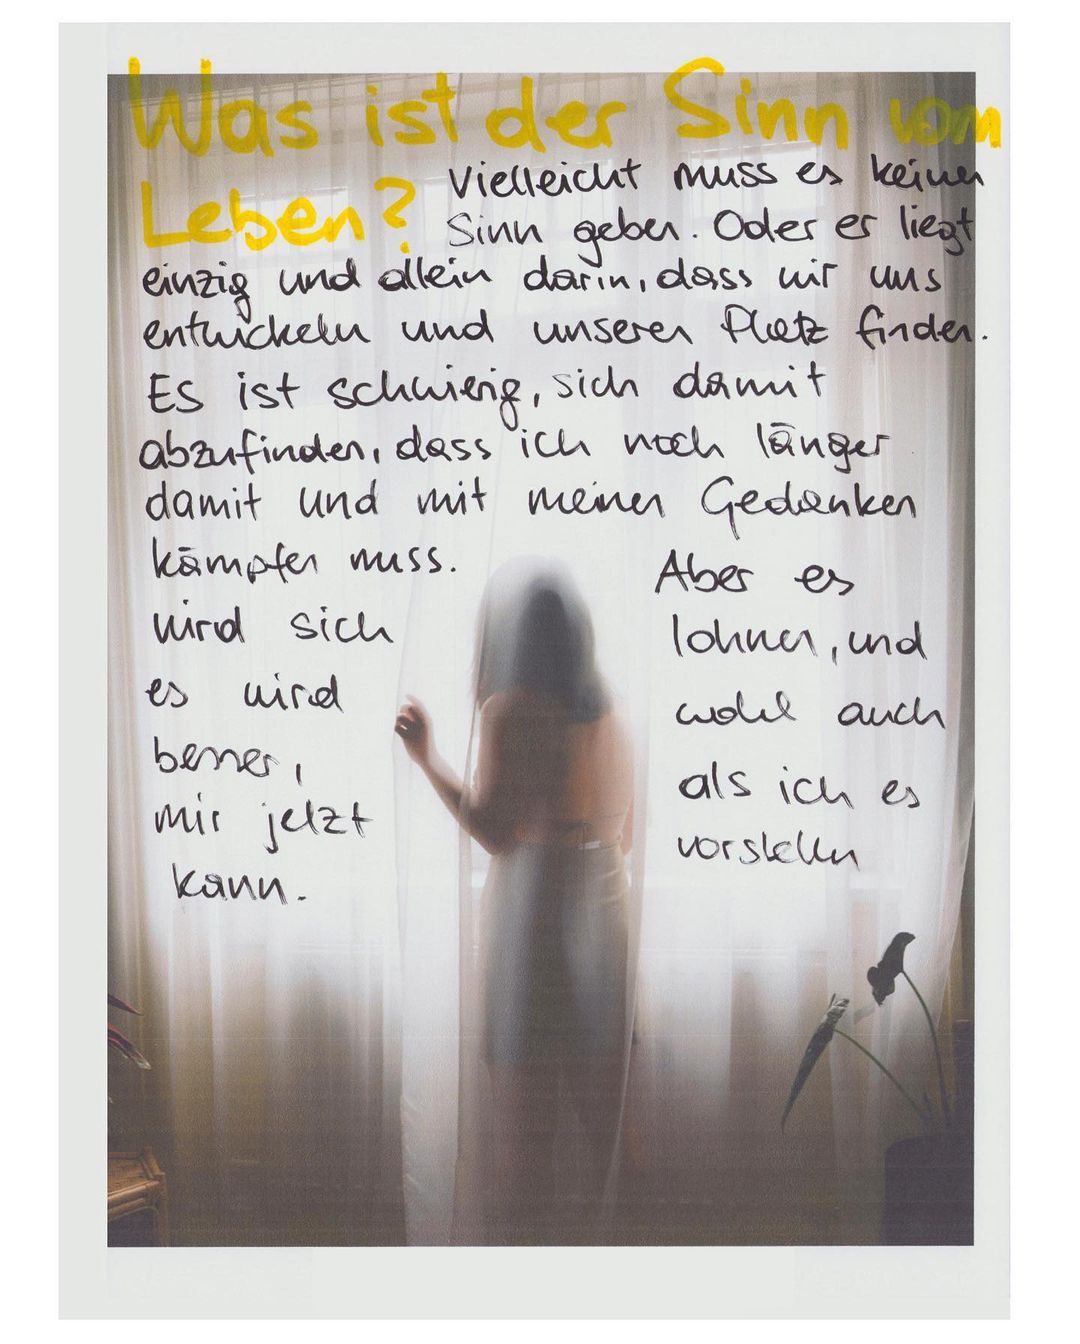 Was ist der Sinn vom
Leben? Vielleicht muss es keinen
Sinn geben. Oder er liegt
einzig und allein darin, dass wir uns
entwickeln und unseren Platz finden.
Es ist schwierig, sich damit
abzufinden, dass ich noch länger
damit und mit meinen Gedanken
kämpfen muss. Aber es
wird sich lohnen, und
es wird wohl auch
besser, als ich es
mir jetzt vorstellen
kann.